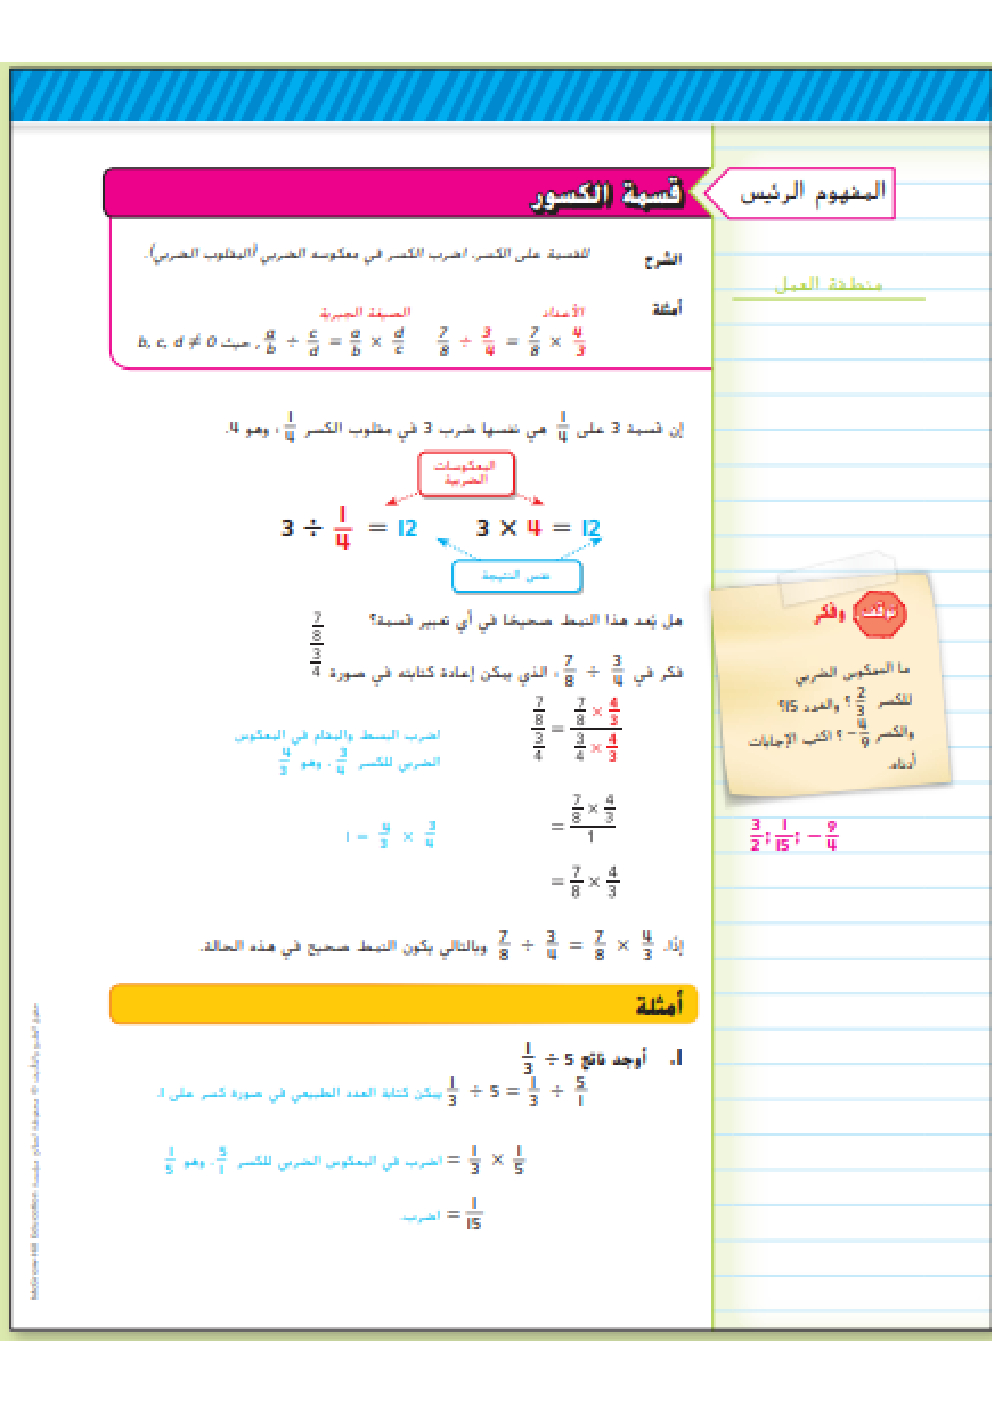 المفهوم الرئيس
قسمة الكسور
الشرح
للقسمة على الكسر، اضرب الكسر في معكوسه الضربي (المقلوب الضربي).
أمثلة
الأعداد
الصيغة الجبرية
7/8 ÷ 3/4 = 7/8 × 4/3
a/b ÷ c/d = a/b × d/c , حيث b, c, d ≠ 0
منطقة العمل
إن قسمة 3 على 1/4 هي نفسها ضرب 3 في مقلوب الكسر 1/4، وهو 4.
المعكوسات
الضربية
3 ÷ 1/4 = 12 3 × 4 = 12
نفس النتيجة
هل يُعد هذا النمط صحيحًا في أي تعبير قسمة؟
فكر في 7/8 ÷ 3/4، الذي يمكن إعادة كتابته في صورة (7/8)/(3/4)
(7/8)/(3/4) = (7/8 × 4/3)/(3/4 × 4/3)
اضرب البسط والمقام في المعكوس
الضربي للكسر 3/4، وهو 4/3
= (7/8 × 4/3)/1
3/4 × 4/3 = 1
= 7/8 × 4/3
إذًا، 7/8 ÷ 3/4 = 7/8 × 4/3 وبالتالي يكون النمط صحيح في هذه الحالة.
توقف وفكر
ما المعكوس الضربي
للكسر 2/3؟ والعدد 15؟
والكسر -4/9؟ اكتب الإجابات
أدناه.
3/2; 1/15; -9/4
أمثلة
1. أوجد ناتج 1/3 ÷ 5
1/3 ÷ 5 = 1/3 ÷ 5/1 يمكن كتابة العدد الطبيعي في صورة كسر على 1.
= 1/3 × 1/5 اضرب في المعكوس الضربي للكسر 5/1، وهو 1/5
= 1/15 اضرب.
McGraw-Hill Education